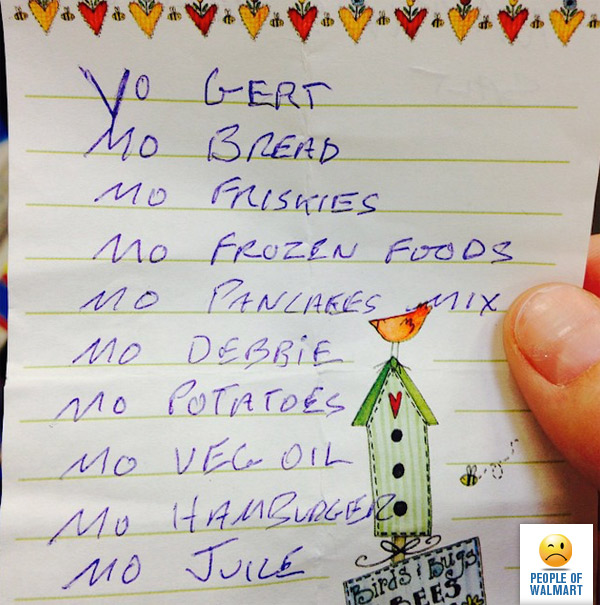 YO GERT
MO BREAD
MO FRISKIES
MO FROZEN FOODS
MO PANCAKES MIX
MO DEBBIE
MO POTATOES
MO VEG OIL
MO HAMBURGER
MO JUICE
Birds & Bugs
BEES
PEOPLE OF
WALMART